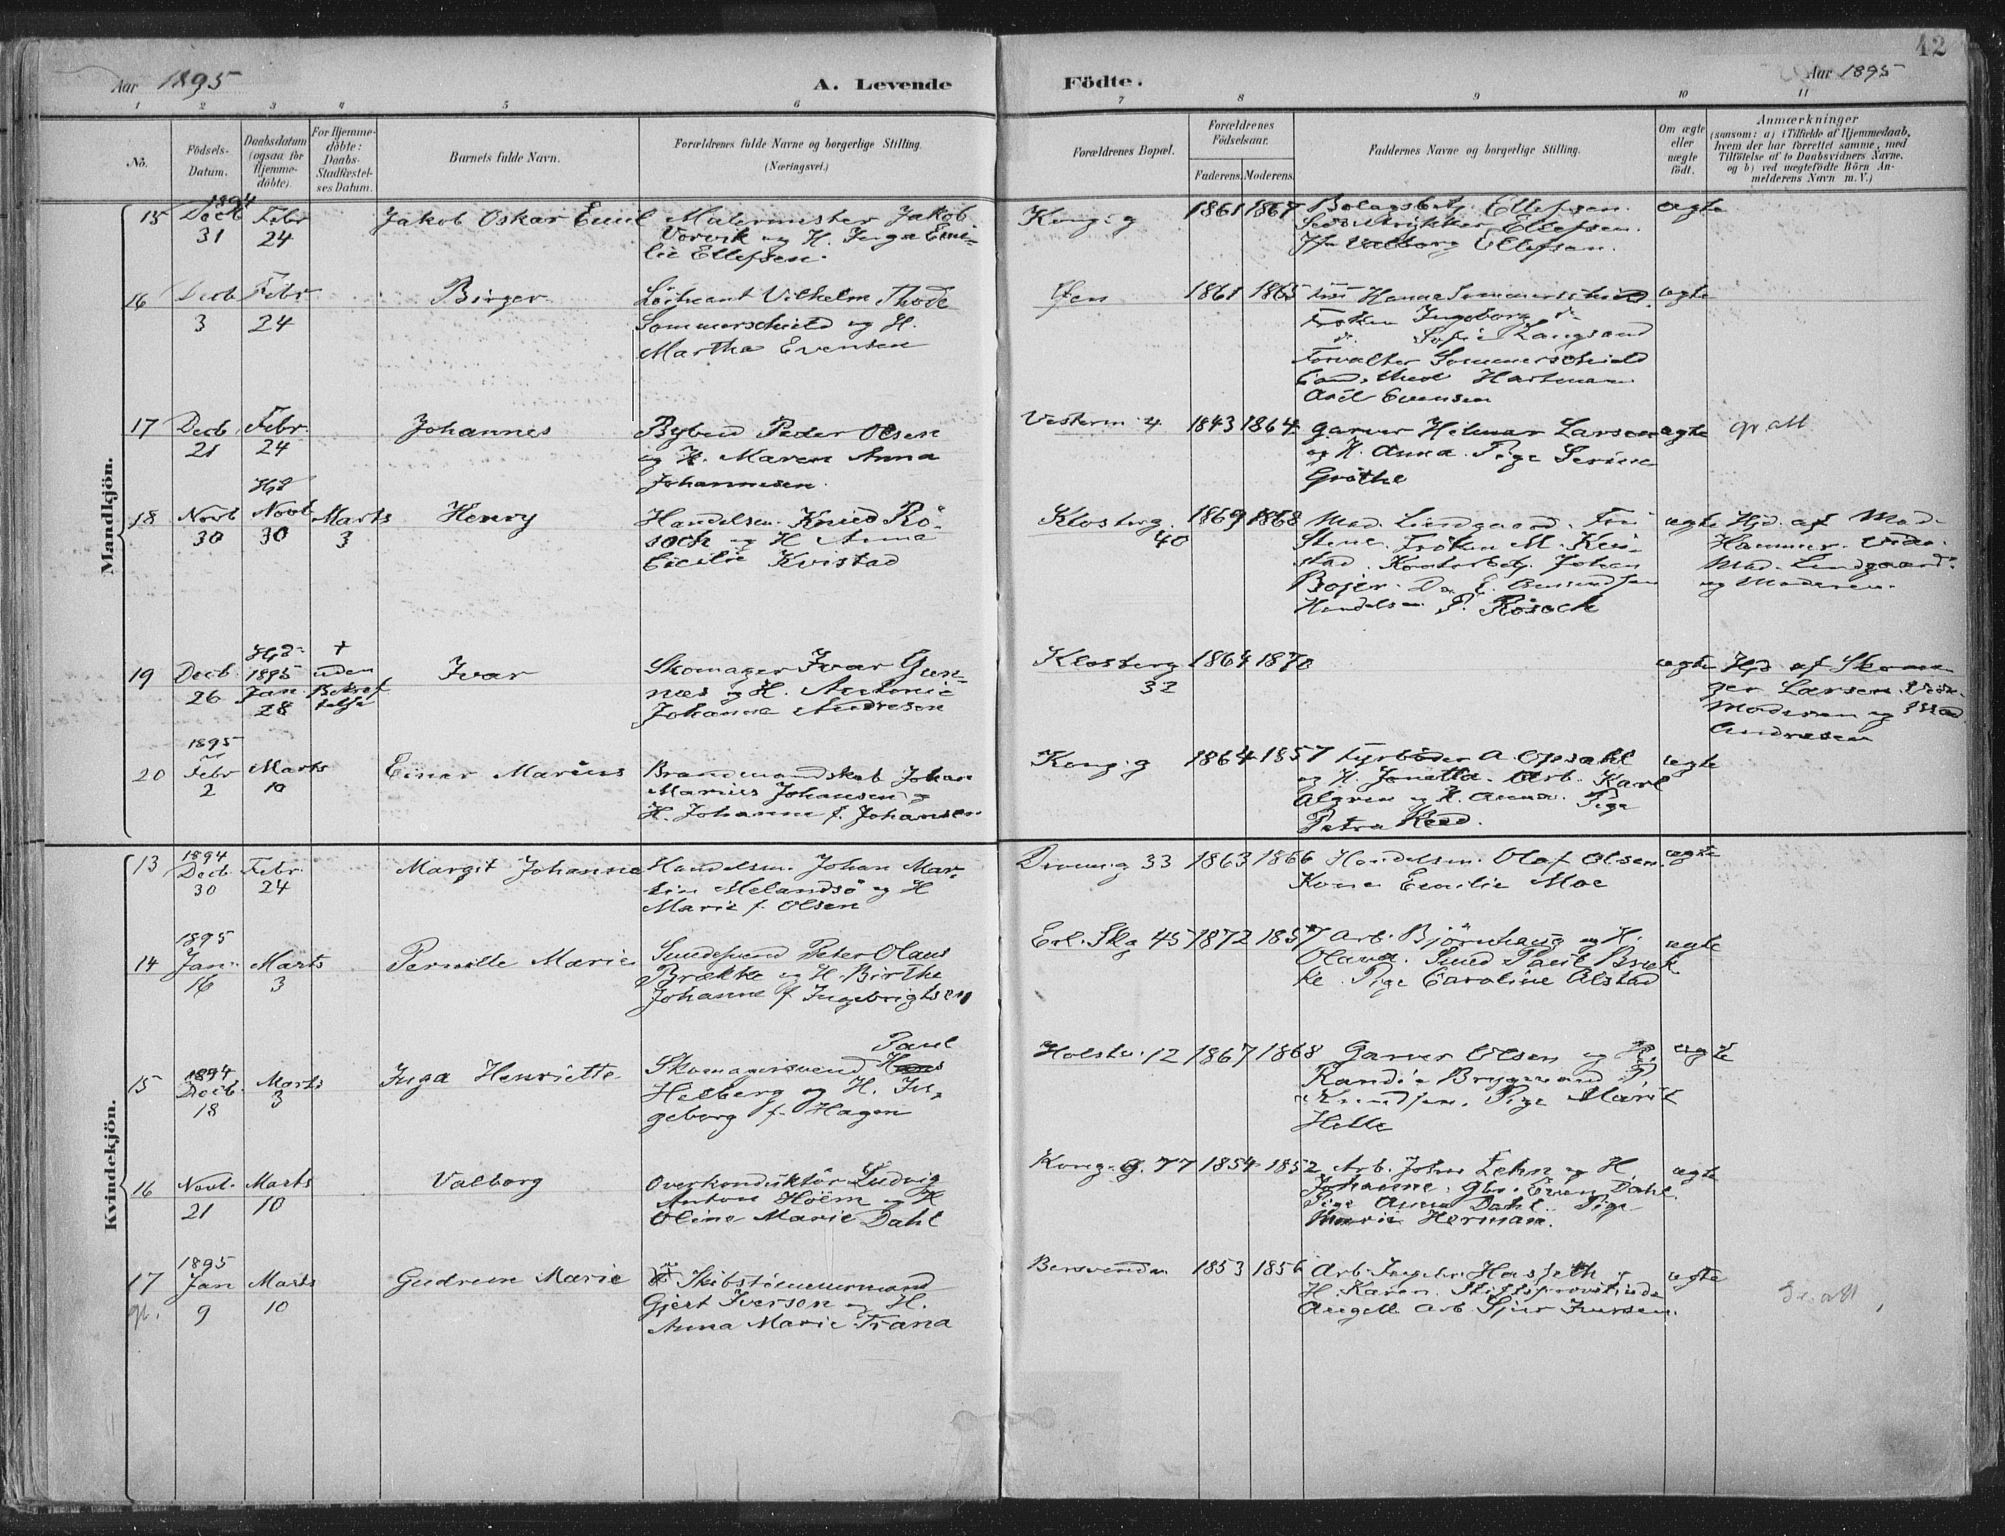 Aar 1895
A. Levende
Födte.
Aar 1895
42
1 2 3 4 5 6 7 8 9 10 11
No.
Födsels-
Datum.
Daabsdatum
(ogsaa for
Hjemme-
döbte).
For Hjemme-
döbte:
Daabs-
Stadfæstel-
ses Datum.
Barnets fulde Navn.
Forældrenes fulde Navne og borgerlige Stilling.
(Næringsvei.)
Forældrenes Bopæl.
Forældrenes
Födselsaar.
Faderens. Moderens.
Faddernes Navne og borgerlige Stilling.
Om ægte
eller
uægte
födt.
Anmærkninger
(saasom: a) i Tilfælde af Hjemmedaab,
hvem der har forrettet samme, med
Tilföielse af to Daabsvidners Navne,
og b) ved uægtefödte Börn An-
melderens Navn m. V.)
Mandkjön.
15
1894
Decb
31
Febr
24
Jakob Oskar Emil
Malermester Jakob
Vorvik og H. Inga Emi-
lie Ellefsen.
Kong. g
1861 1867
Bolagsbet. Ellefsen.
Ellefsen.
Valborg Ellefsen.
ægte
16
Decb
3
Febr
24
Birger
Löitnant Vilhelm Thode
Sommerschield og H.
Martha Evensen
Öen
1861 1865
Hanna Sommerschield
Fröken Ingeborg do
do Sofie Langsand
Forvalter Sommerschield
Cand. theol Hartman
Axel Evensen
ægte
17
Decb.
21
Febr.
24
Johannes
Bybud Peder Olsen
og H. Maren Anna
Johannesen.
Vesterm. 4
1843 1864
Garver Hilmar Larsen
og H. Anna. Pige Serine
Gröthe
ægte
gr att
18
Novb
30
Hjd
Novb
30
Marts
3
Henry
Handelsm. Knud Rö-
soch og H Anna
Cecilie Kvistad
Klosterg.
40
1869 1868
Mad. Lindgaard. Fru
Stene. Fröken M. Kvi-
stad. Kontorbetj. Johan
Bojer.
Handelsm P. Rösock
ægte
Hjd. af Mad.
Hammer. Vidn.
Mad. Lindgaard.
og Moderen.
19
Decb.
26
Hjd-
1895
Jan
28
+
uden
Bekræf
telse
Ivar
Skomager Ivar Gun-
næs og H. Antonie
Johanna Andresen
Klosterg
32
1864 1870
ægte
Hjd af Skoma
ger Larsen. Vidn.
Moderen og Mad
Andresen
20
1895
Febr
2
Marts
10
Einar Marius
Brandmandskab Johan
Marius Johansen og
H. Johanna f. Johansen
Kong. g
1864 1857
Fyrböder A. Opsahl
og H. Jonetta. Arb. Karl
Algren og H. Anna. Pige
Petra
ægte
Kvindekjön.
13
1894
Decb.
30
Febr.
24
Margit Johanne
Handelsm. Johan Mar-
tin Melandsö og H
Marie f. Olsen
Dronn.g 33
1863 1866
Handelsm. Olaf Olsen.
Kone Emilie Moe
ægte
14
1895
Jan.
16
Marts
3
Pernille Marie
Smedsvend Peter Olaus
Brække og H. Birthe
Johanne f Ingebrigtsen
Erl. Skg 45
1872 1857
Arb. Björnhaug og H.
Olava. Smed Paul Bræk
ke. Pige Caroline Alstad
ægte
15
1894
Decb.
18
Marts
3
Inga Henriette
Paul
Skomagersvend Hans
Helberg og H. In-
geborg f. Hagen
Holstv. 12
1867 1868
Garver Olsen og H.
Randi Bryggmand P
Knudsen. Pige Marit
Helle
ægte
16
Novb.
21
Marts
10
Valborg
Overkonduktör Ludvig
Anton Höem og H
Oline Marie Dahl
Kong. g. 77
1854 1852
Arb. John Lehn og H
Johanne. Gbr. Even Dahl.
Pige Anna Dahl. Pige
Marie Herman.
ægte
17
gr.
1895
Jan
9
Marts
10
Gudrun Marie
Skibstömmermand
Gjert Iverson og H.
Anna Marie Trana
Bersvenda
1853 1856
Arb. Hasseth og
H. Karen. Stiftsprovstinde
Angell. Arb. Sjur Iversen.
ægte
Gr. att